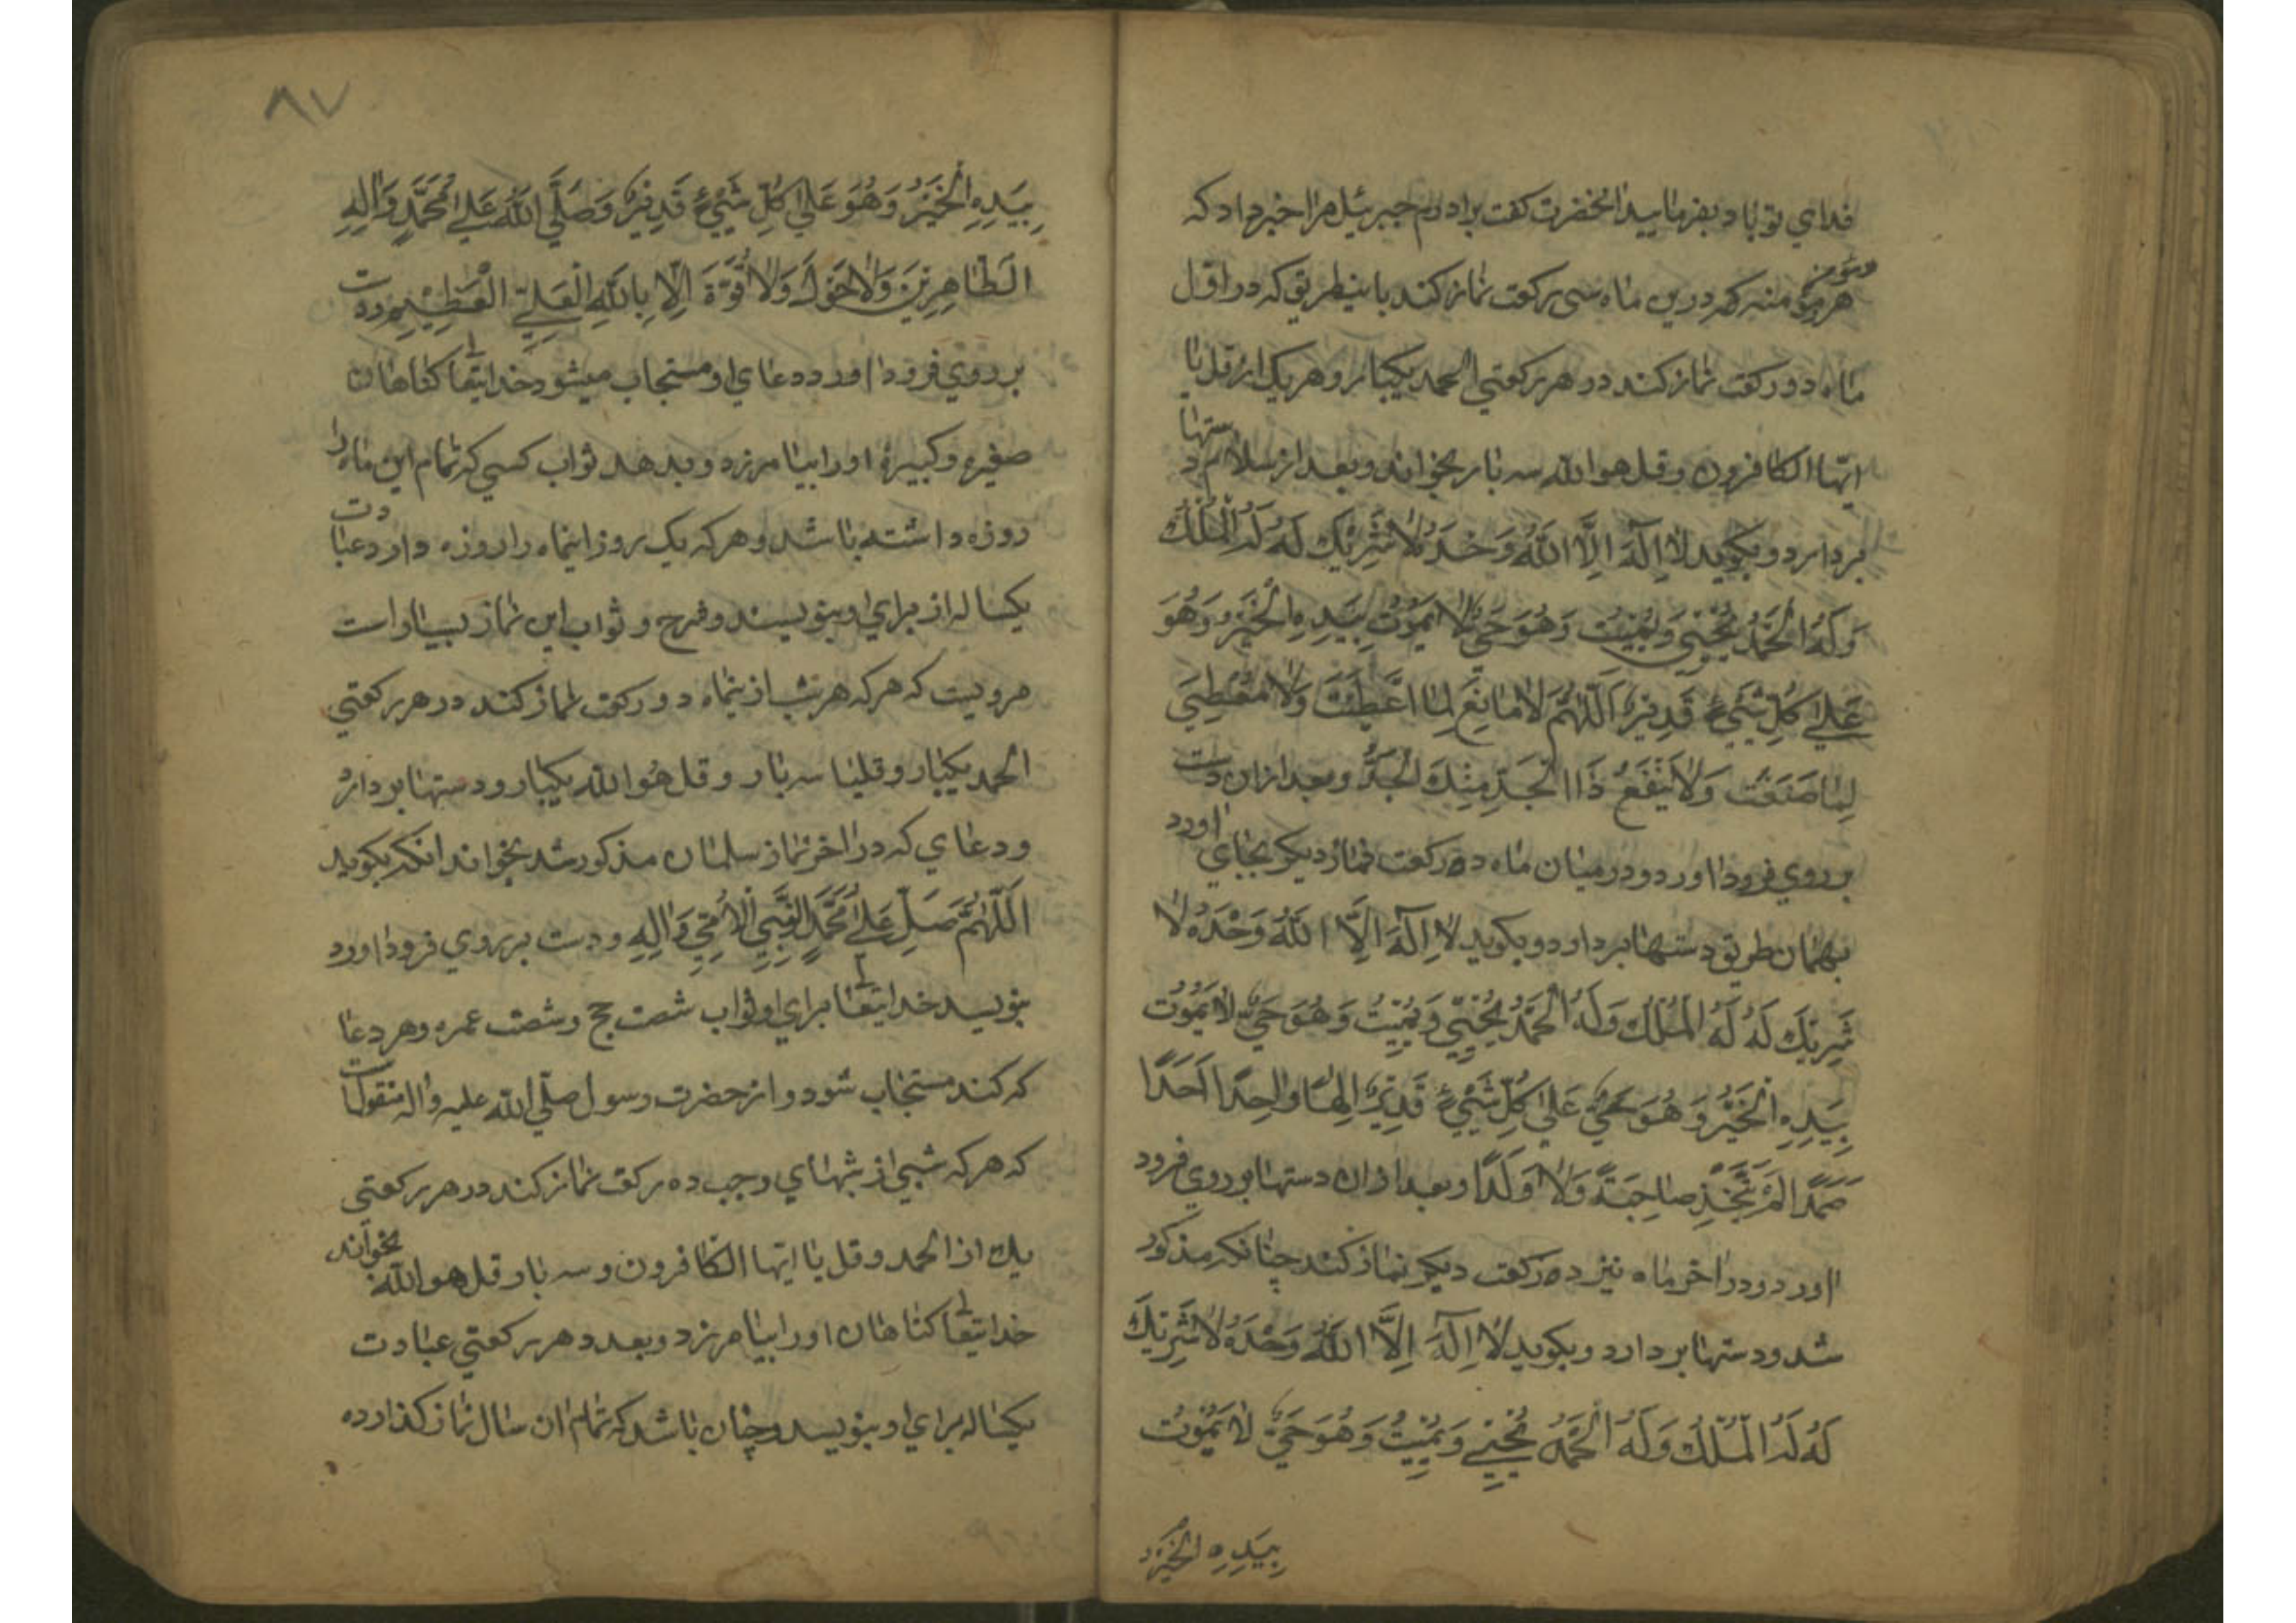 فداي تو باد بفرماييد انحضرت کفت برادرم جبرئيل مرا خبر داد که
هر مؤمن و مؤمنه که درين ماه سی رکعت نماز کند باينطريق که در اول
ماه دو رکعت نماز کند در هر رکعتي الحمد يکبار و هر يک از قل يا
ايها الکافرون و قل هو الله سه بار بخواند و بعد از سلام دستها
بردارد و بکويد لا اِلٰهَ اِلَّا اللهُ وَحْدَهُ لا شَرِيْكَ لَهُ لَهُ الْمُلْكُ
وَلَهُ الْحَمْدُ يُحْيِي وَيُمِيْتُ وَهُوَ حَيٌّ لا يَمُوْتُ بِيَدِهِ الْخَيْرُ وَهُوَ
عَلٰي كُلِّ شَيْيءٍ قَدِيْرٌ اَللّٰهُمَّ لا مٰانِعَ لِمٰا اَعْطَيْتَ وَلا مُعْطِيَ
لِمٰا صَنَعْتَ وَلا يَنْفَعُ ذَا الْجَدِّ مِنْكَ الْجَدُّ وبعد ازان دست
بر روي فرود اورد و در ميان ماه ده رکعت نماز ديکر بجاي اورد
بهمان طريق دستها بردارد و بکويد لا اِلٰهَ اِلَّا اللهُ وَحْدَهُ لا
شَرِيْكَ لَهُ لَهُ الْمُلْكُ وَلَهُ الْحَمْدُ يُحْيِي وَيُمِيْتُ وَهُوَ حَيٌّ لا يَمُوْتُ
بِيَدِهِ الْخَيْرُ وَهُوَ حَيٌّ عَلٰي كُلِّ شَيْيءٍ قَدِيْرٌ اِلٰهًا وٰاحِدًا اَحَدًا
صَمَدًا لَمْ يَتَّخِذْ صٰاحِبَةً وَلا وَلَدًا وبعد ازان دستها بر روي فرود
اورد و در اخر ماه نيز ده رکعت ديکر نماز کند چنانکه مذکور
شد و دستها بردارد و بکويد لا اِلٰهَ اِلَّا اللهُ وَحْدَهُ لا شَرِيْكَ
لَهُ لَهُ الْمُلْكُ وَلَهُ الْحَمْدُ يُحْيِي وَيُمِيْتُ وَهُوَ حَيٌّ لا يَمُوْتُ
بِيَدِهِ الْخَيْرُ
٨٧
بِيَدِهِ الْخَيْرُ وَهُوَ عَلٰي كُلِّ شَيْيءٍ قَدِيْرٌ وَصَلَّي اللهُ عَلٰي مُحَمَّدٍ وَاٰلِهِ
الطّٰاهِرِيْنَ وَلا حَوْلَ وَلا قُوَّةَ اِلّا بِاللهِ الْعَلِيِّ الْعَظِيْمِ و دست
بر روي فرود اورد دعاي او مستجاب ميشود خدايتعالي کناهان
صغيره و کبيره اورا بيامرزد و بدهد ثواب کسي که تمام اين ماه را
روزه داشته باشد و هر که يک روز اينماه را روزه دارد عبادت
يکساله از براي او بنويسند و شرح و ثواب اين نماز بسيار است
مرويست که هر که هر شب ازينماه دو رکعت نماز کند در هر رکعتي
الحمد يکبار و قليا سه بار و قل هُوَ الله يکبار و دستها بردارد
و دعاي که در اخر نماز سلمان مذکور شد بخواند انکه بکويد
اَللّٰهُمَّ صَلِّ عَلٰي مُحَمَّدٍ النَّبِيِّ الْاُمِّيِّ وَاٰلِهِ و دست بر روي فرود اورد
بنويسد خدايتعالي براي او ثواب شصت حج و شصت عمره و هر دعا
که کند مستجاب شود و از حضرت رسول صلّي الله عليه واله منقولست
که هر که شبي از شبهاي رجب ده رکعت نماز کند در هر رکعتي
يك از الحمد و قل يا ايها الکافرون و سه بار قل هو الله بخواند
خدايتعالي کناهان اورا بيامرزد و بعدد هر رکعتي عبادت
يکساله براي او بنويسد و چنان باشد که تمام ان سال نماز کذارده